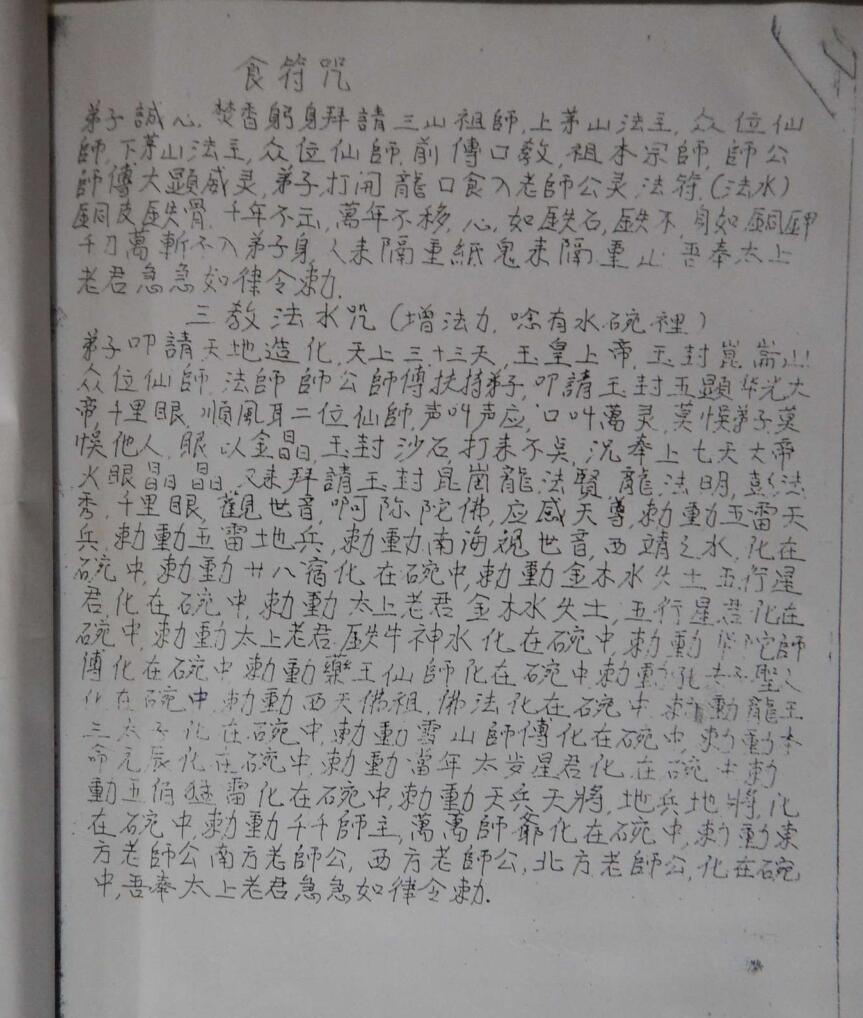 食符咒
弟子誠心,焚香躬身拜請三山祖師,上茅山法主,众位仙
師,下茅山法主,众位仙師,前傳口教,祖本宗師,師公
師傳大顯威灵,弟子,打開龍口食入老師公灵,法符,(法水)
銅皮鉄骨,千年不忘,萬年不移,心,如鉄石,鉄不,身如,銅鉀
千刀萬斬不入弟子身,人来隔重紙鬼来隔重山,吾奉太上
老君急急如律令勅.
三教法水咒(增法力,唸有水碗裡)
弟子叩請天地造化,天上三,十三天,玉皇上帝,玉封崑崙山
众位仙師,法師師公師傳扶持弟子,叩請玉封五顯华光大
帝,千里眼,順風耳二位仙師,声叫声应,口叫萬灵,莫悞弟子,莫
悞他人,眼以金晶,玉封沙石打来不吳,況奉上七天大帝
火眼晶晶,又来拜請玉封崑崗龍法賢龍法明,彭法
秀,千里眼,觀世音,啊弥陀佛,应感天尊,勅動五雷天
兵,勅動五雷地兵,勅動,南海視世音,西靖之水,化在
碗中,勅動廿八宿化在碗中,勅動金木水失土,五行星
君,化在碗中,勅動太上老君金木水失土,五行星君化在
碗中,勅動太上老君,鉄牛神水化在碗中,勅動陀師
傳化在碗中,勅動藥王仙師化在碗中,勅動孔夫子聖人
化在碗中,勅動西天佛祖,佛法化在碗中,勅動龍王
三太子化在碗中,勅動雪山師傳化在碗中,勅動本
命元辰化在碗中,勅動當年太岁星君化在碗中,勅
動五伯雷化在碗中,勅動天兵天將,地兵地將,化
在碗中,勅動千千師主,萬萬師爺化在碗中,勅動東
方老師公南方老師公,西方老師公,北方老師公,化在碗
中,吾奉太上老君急急如律令勅.